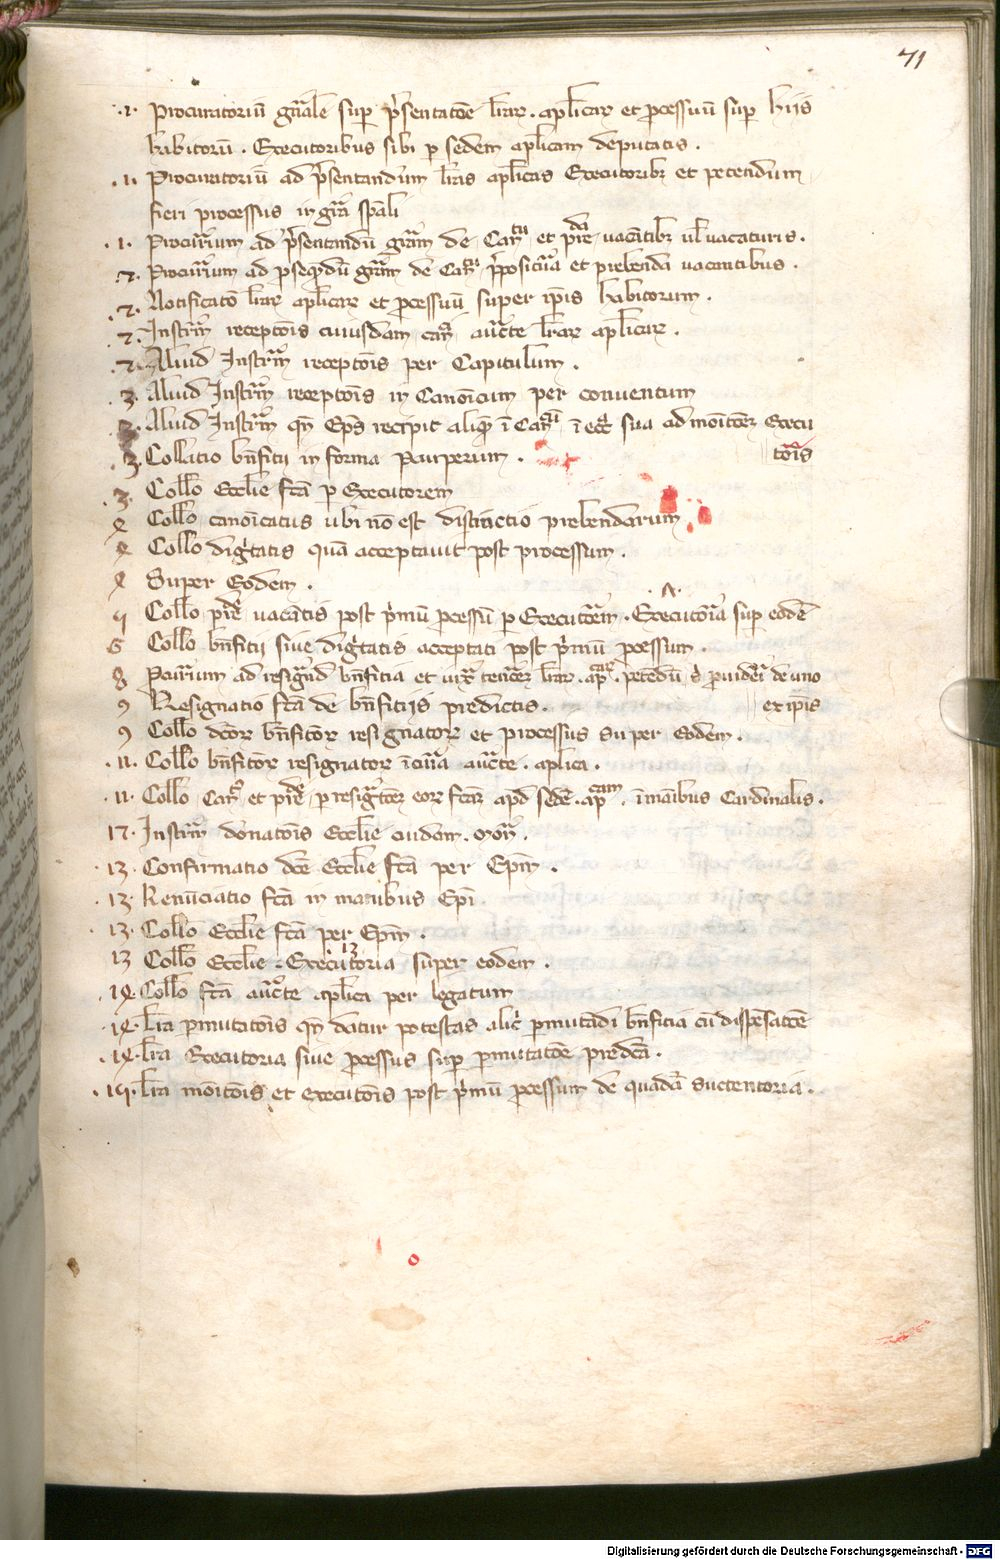 71
.1. Procuratoriū gn̄ale sup p̄sentatōe lr̄ar. aplicar et ꝓcessuū sup hijs
habitorū. Executoribus sibi p sedem aplicam deputatis.
.1. Procuratoriū ad p̄sentandum lr̄as aplicas Executoribꝫ et petendum
fieri processus in gr̄a sp̄ali
.1. Procur̄ium ad p̄sentandū gr̄am de Can̄tu et p̄bēda vacātibꝫ vl̄ vacaturis.
.2. Procur̄ium ad ꝓseqn̄dū gr̄am de Can̄tu p̄positura et prebenda vacantibus.
.2. Notificatō lr̄ar aplicar et ꝓcessuū super ip̄is habitorum.
.2. Instr̄m receptōis cuiusdam can̄ci auc̄te lr̄ar aplicar.
.2. Aliud Instr̄m receptōis per Capitulum.
3. Aliud Instr̄m receptōis in Canōicum per conuentum
.3. Aliud Instr̄m qn̄ Ep̄s recipit aliq̄ ī Can̄cū ī ecc̄a sua ad monitōem Execu
tōris
.3. Collatio bn̄ficii in forma Pauperum.
.3. Coll̄o Eccl̄ie fc̄a p Executorem
4 Coll̄o canōicatus ubi nō est distinctio prebendarum
4 Coll̄o dignitatis quā acceptauit post processum.
4 Super Eodem.
5 Coll̄o p̄bēde vacātis post p̄mū ꝓcessū p Executōem. Executōia sup eodē
6 Coll̄o bn̄ficii siue dignitatis acceptati post p̄mū ꝓcessum.
8 Ꝓcur̄ium ad resignād bn̄ficia et
de uno
ex ip̄is
9 Resignatio fc̄a de bn̄ficijs predictis.
9 Coll̄o dc̄or bn̄ficior resignator et processus super Eodem.
.11. Coll̄o bn̄ficior resignator ī curia auc̄te. aplica.
.11. Coll̄o Can̄tus et p̄bēde p resignatōem eor fc̄ar apd sedē. ap̄cam. ī manibus Cardinalis.
12. Instr̄m donatōis Eccl̄ie cuidam. mon̄.
.13. Confirmatio dc̄e Eccl̄ie fc̄a per Ep̄m.
.13. Renūciatio fc̄a in manibus Ep̄i
.13. Coll̄o Eccl̄ie fc̄a per Ep̄m.
13
13 Coll̄o Eccl̄ie. Executoria super eodem.
.14. Coll̄o fc̄a auc̄te aplica per legatum
.14. Lr̄a ꝑmutatōis qn̄ datur potestas alic̄ ꝑmutādi bn̄ficia cū dispēsatōe
.14. Lr̄a Executoria siue ꝓcessus sup ꝑmutatōe predc̄a.
.15. Lr̄a monitōis et executōis post p̄mū ꝓcessum de quadā succentoria.
Digitalisierung gefördert durch die Deutsche Forschungsgemeinschaft - DFG